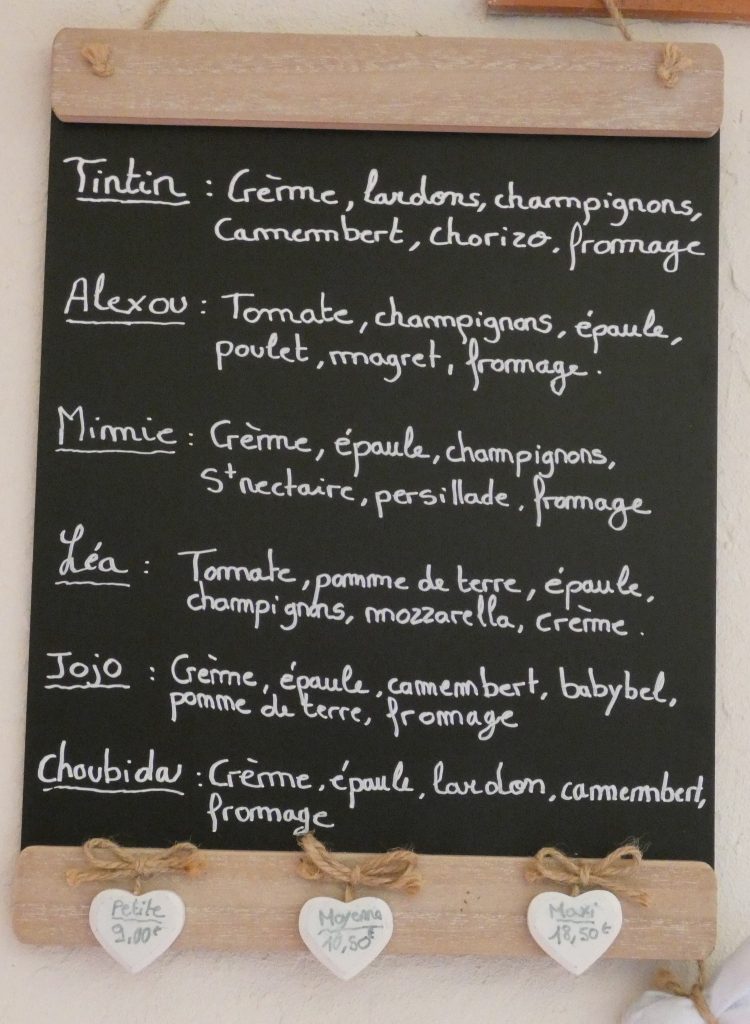 Tintin : Crème, lardons, champignons,
Camembert, chorizo, fromage
Alexou : Tomate, champignons, épaule,
poulet, magret, fromage.
Mimie : Crème, épaule, champignons,
St nectaire, persillade, fromage
Léa : Tomate, pomme de terre, épaule,
champignons, mozzarella, crème.
Jojo : Crème, épaule, camembert, babybel,
pomme de terre, fromage
Choubida : Crème, épaule, lardon, camembert,
fromage
Petite
9,00€
Moyenne
10,50€
Maxi
18,50€